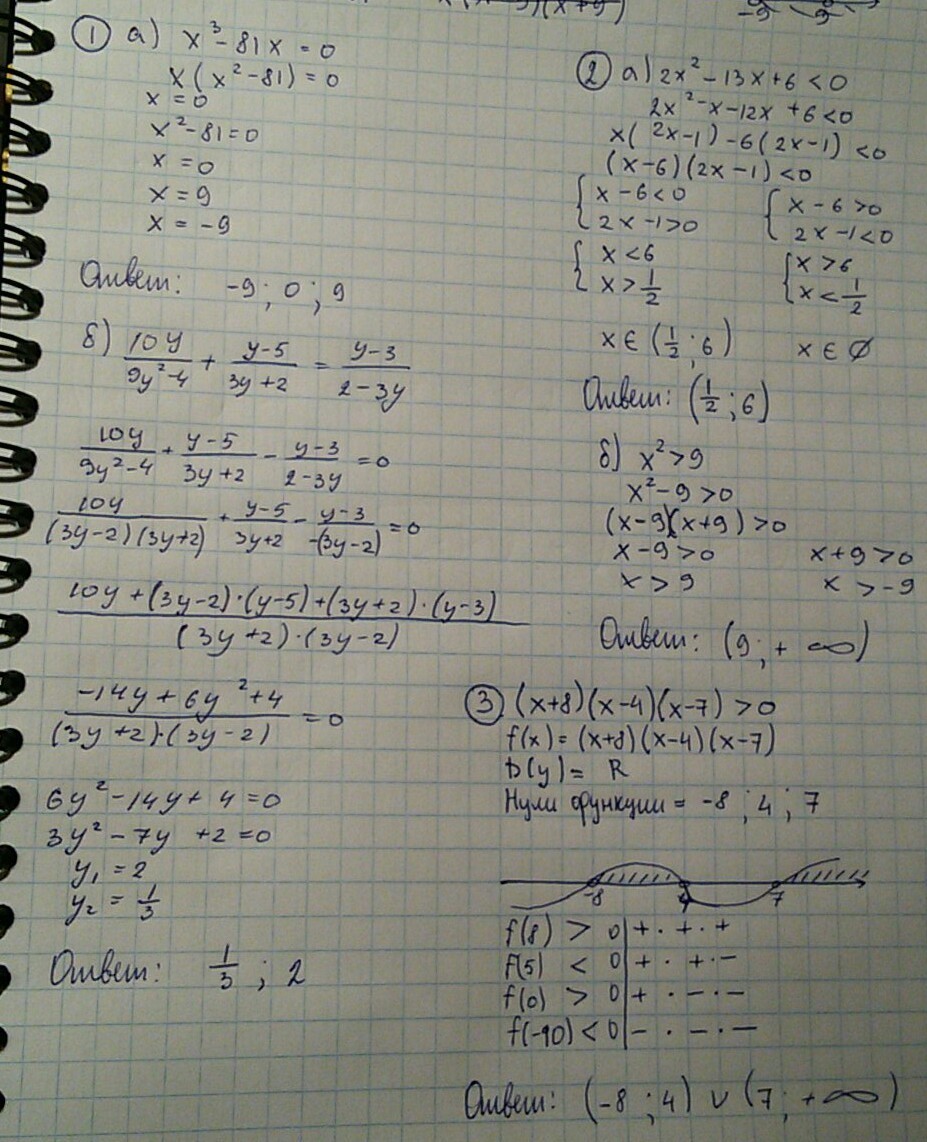 ① а) x³ - 81x = 0
x(x² - 81) = 0
x = 0
x² - 81 = 0
x = 0
x = 9
x = -9
Ответ: -9; 0; 9
б) 10y/(9y² - 4) + (y - 5)/(3y + 2) = (y - 3)/(2 - 3y)
10y/(9y² - 4) + (y - 5)/(3y + 2) - (y - 3)/(2 - 3y) = 0
10y/((3y - 2)(3y + 2)) + (y - 5)/(3y + 2) - (y - 3)/(-(3y - 2)) = 0
(10y + (3y - 2)·(y - 5) + (3y + 2)·(y - 3))/((3y + 2)·(3y - 2))
(-14y + 6y² + 4)/((3y + 2)·(3y - 2)) = 0
6y² - 14y + 4 = 0
3y² - 7y + 2 = 0
y₁ = 2
y₂ = 1/3
Ответ: 1/3; 2
② а) 2x² - 13x + 6 < 0
2x² - x - 12x + 6 < 0
x(2x - 1) - 6(2x - 1) < 0
(x - 6)(2x - 1) < 0
{ x - 6 < 0 { x - 6 > 0
2x - 1 > 0 2x - 1 < 0
{ x < 6 { x > 6
x > 1/2 x < 1/2
x ∈ (1/2; 6) x ∈ ∅
Ответ: (1/2; 6)
б) x² > 9
x² - 9 > 0
(x - 9)(x + 9) > 0
x - 9 > 0 x + 9 > 0
x > 9 x > -9
Ответ: (9; + ∞)
③ (x + 8)(x - 4)(x - 7) > 0
f(x) = (x + 8)(x - 4)(x - 7)
D(y) = R
Нули функции = -8; 4; 7
-8 4 7
f(8) > 0 | + · + · +
f(5) < 0 | + · + · -
f(0) > 0 | + · - · -
f(-90) < 0 | - · - · -
Ответ: (-8; 4) ∪ (7; + ∞)